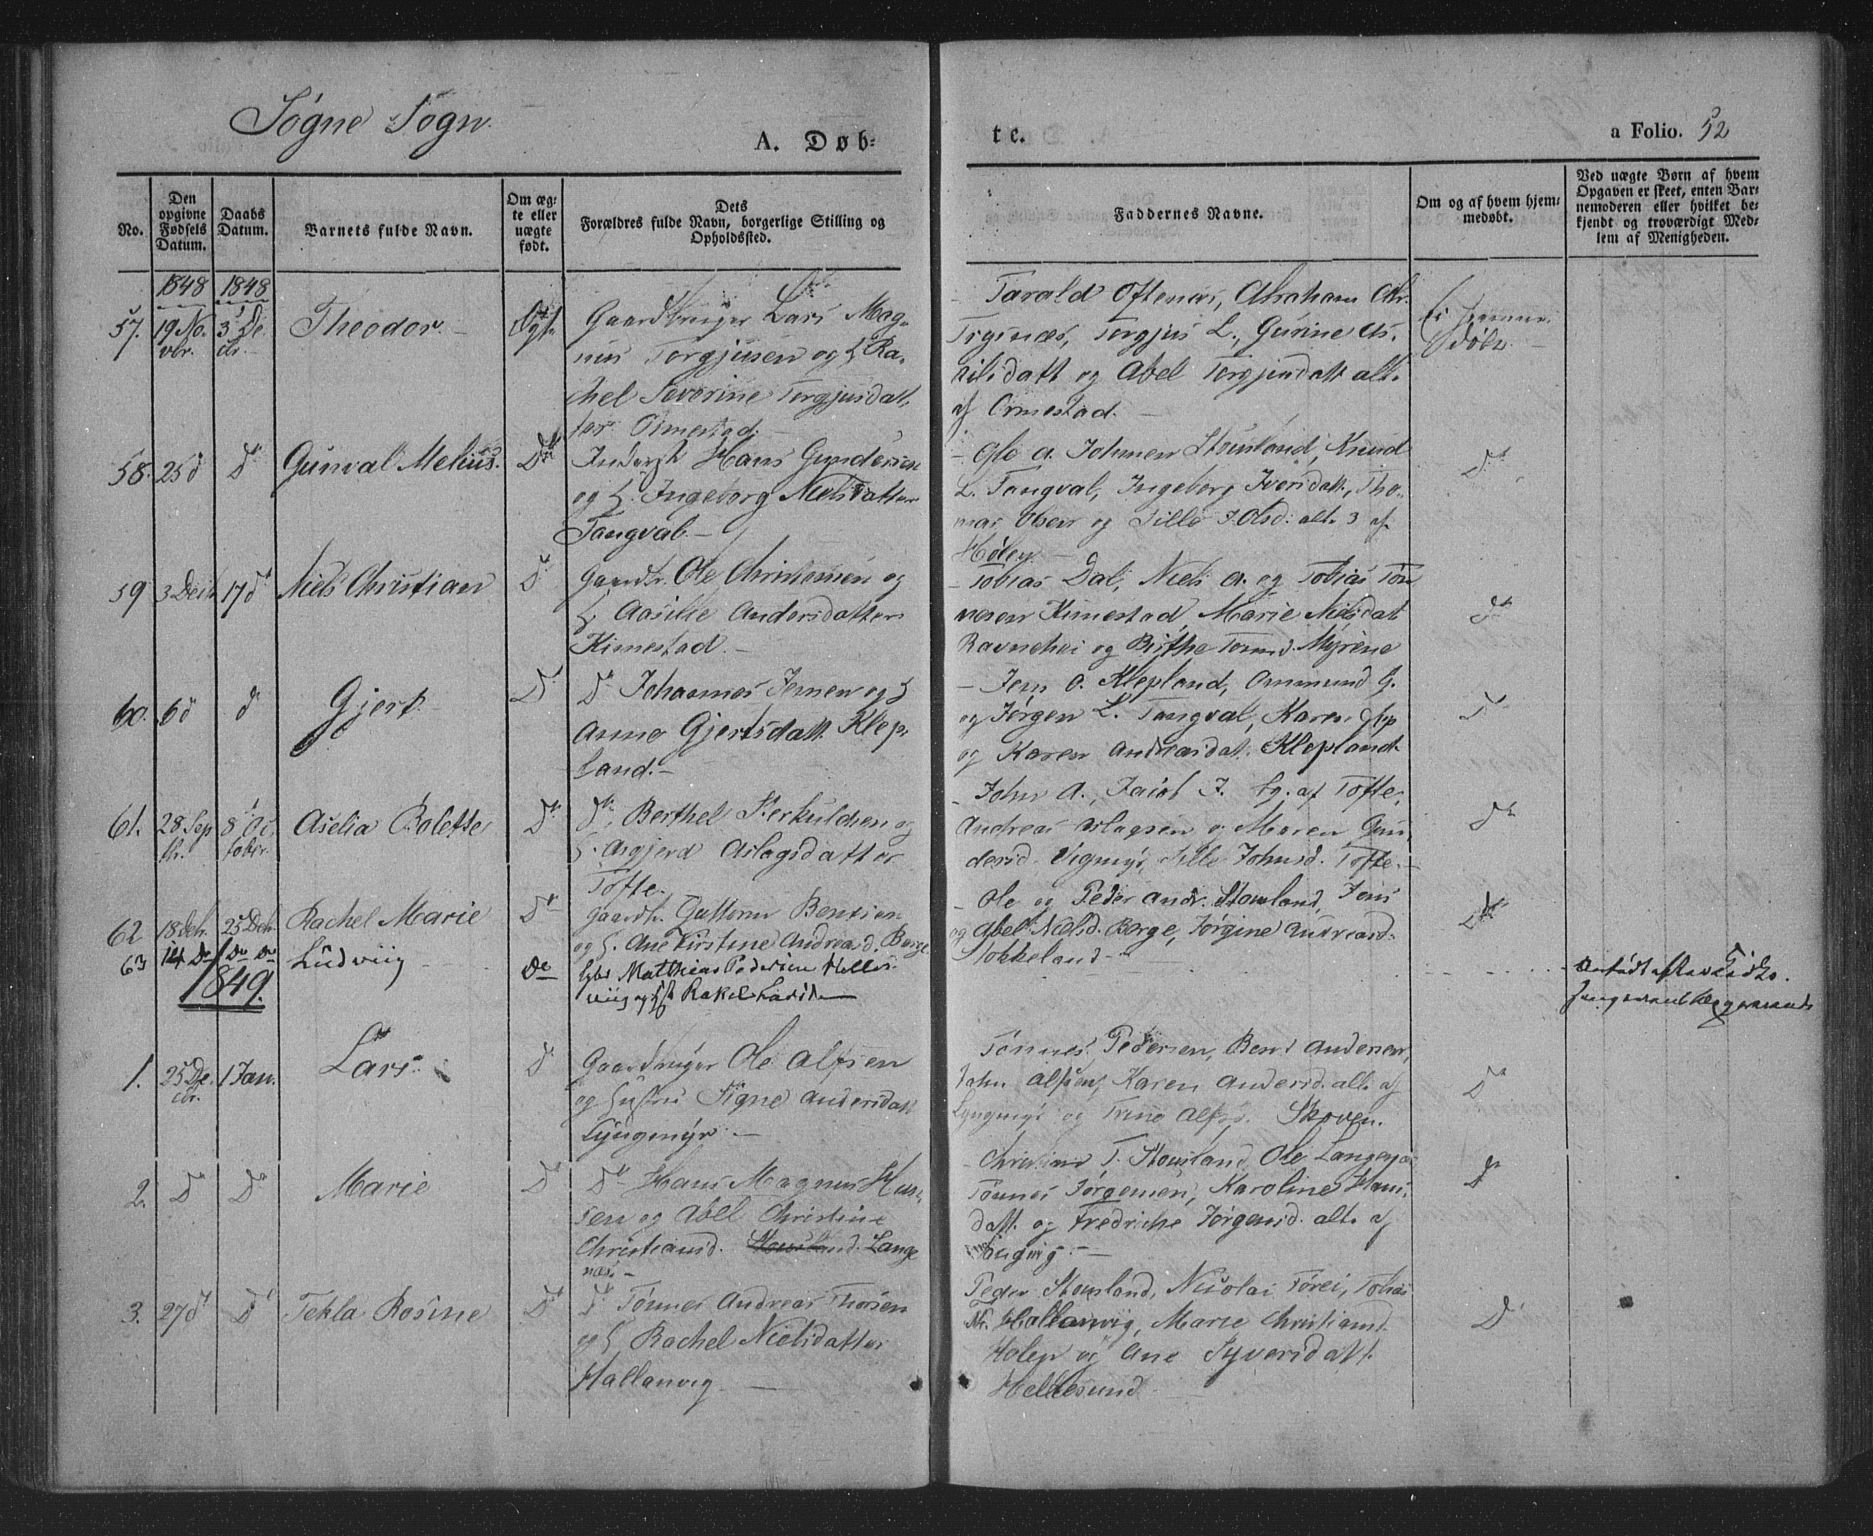 Søgne Sogn
A. Døb=
te.
a Folio. 52
No.
Den opgivne Fødsels Datum.
Daabs Datum.
Barnets fulde Navn.
Om ægte eller uægte født.
Dets
Forældres fulde Navn, borgerlige Stilling og
Opholdssted.
Faddernes Navne.
Om og af hvem hjem=
medøbt.
Ved uægte Børn af hvem
Opgaven er skeet, enten Bar=
nemoderen eller hvilket be=
kjendt og troværdigt Med=
lem af Menigheden.
1848 1848
57. 19 No. 3 De. Theodor. Ægte Gaardbruger Lars Mag-
vbr. cbr.
nus Torgjusen og H. Ra-
chel Severine Torgjusdat-
ter Ormestad.
Tarald Oftenæs, Abraham Chr.
Trysnæs, Torgjus L., Gurine As-
kilsdatt og Abel Torgjusdatt alle
af Ormestad.
Ei hjemme-
døbt.
58. 25 d D Gunval Melius. D Inderst Hans Gundersen
og H. Ingeborg Nielsdatter
Tangval.
Ole A. Johnsen Stousland, Knud
L. Tangval, Ingeborg Iversdatt, Tho-
mas Olsen og Sille T. Olsd: alle 3 af
Høley
D
59 3 Decb 17 d Niels Christian D Gaardbr. Ole Christensen og
H. Aasille Andersdatter
Kimestad.
Tobias Dal, Niels A. og Tobias Tøn-
nesen Kimestad, Marie Nilsdat
Ravnehei og Birthe Tomsd. Myrene
D
60. 6 d d Gjert D D Johannes Jensen og H
Anne Gjertsdatt Klep-
land.
Jens O. Klepland, Ommund G.
og Jørgen L. Tangval, Karen
og Karen Andreasdat. Klepland.
D
61. 28 Sep 8 Oc Aselia Bolette D D Berthel Terkuldsen og
tbr. tober
H. Asgjerd Aslagsdatter
Tofte.
John A., Jacob J. Lg. af Tofte,
Andreas Aslagsen og Maren Gun-
dersd. Sille Johnsd. Tofte.
D
62 18 Dcb. 25 Dcb. Rachel Marie D Gaardbr. Guttorm Bentsen
og H. Ane Kirstine Andreasd. Berge
Ole og Peder Andr. Stousland, Jens
og Abel Nielsd. Berge, Jørgine Andreasd.
Stokkeland.
D
63 14 Do Do Do Ludvig Do Mathias Pedersen Helle-
viig og H Rakel
1849.
1. 25 De. 1 Jan. Lars D Gaardbruger Ole Alfsen
cbr.
og Hustru Signe Andersdatt
Lyngmyr.
Tønnes Pedersen, Bent Andersen,
John Alfsen, Karen Andersd. alle af
Lyngmyr og Trine Alfsd. Skoven.
D
2. D D Marie D D Hans Magnus Han-
sen og Abel Christine
Christiansd. Stousland. Lange
næs.
Christian T. Stousland, Ole Langenæs
Tønnes Jørgensen, Karoline Hans-
datt. og Fredriche Jørgensd. alle af
Langvig.
D
3. 27 d D Tekla Rosine D D Tønnes Andreas Thorsen
og H. Rachel Nielsdatter
Hallanvig
Peder Stousland, Nicolai Torei, Tobias
Hallanvig, Marie Christiansd.
Holen og Ane Syversdatt.
Hellesund
D